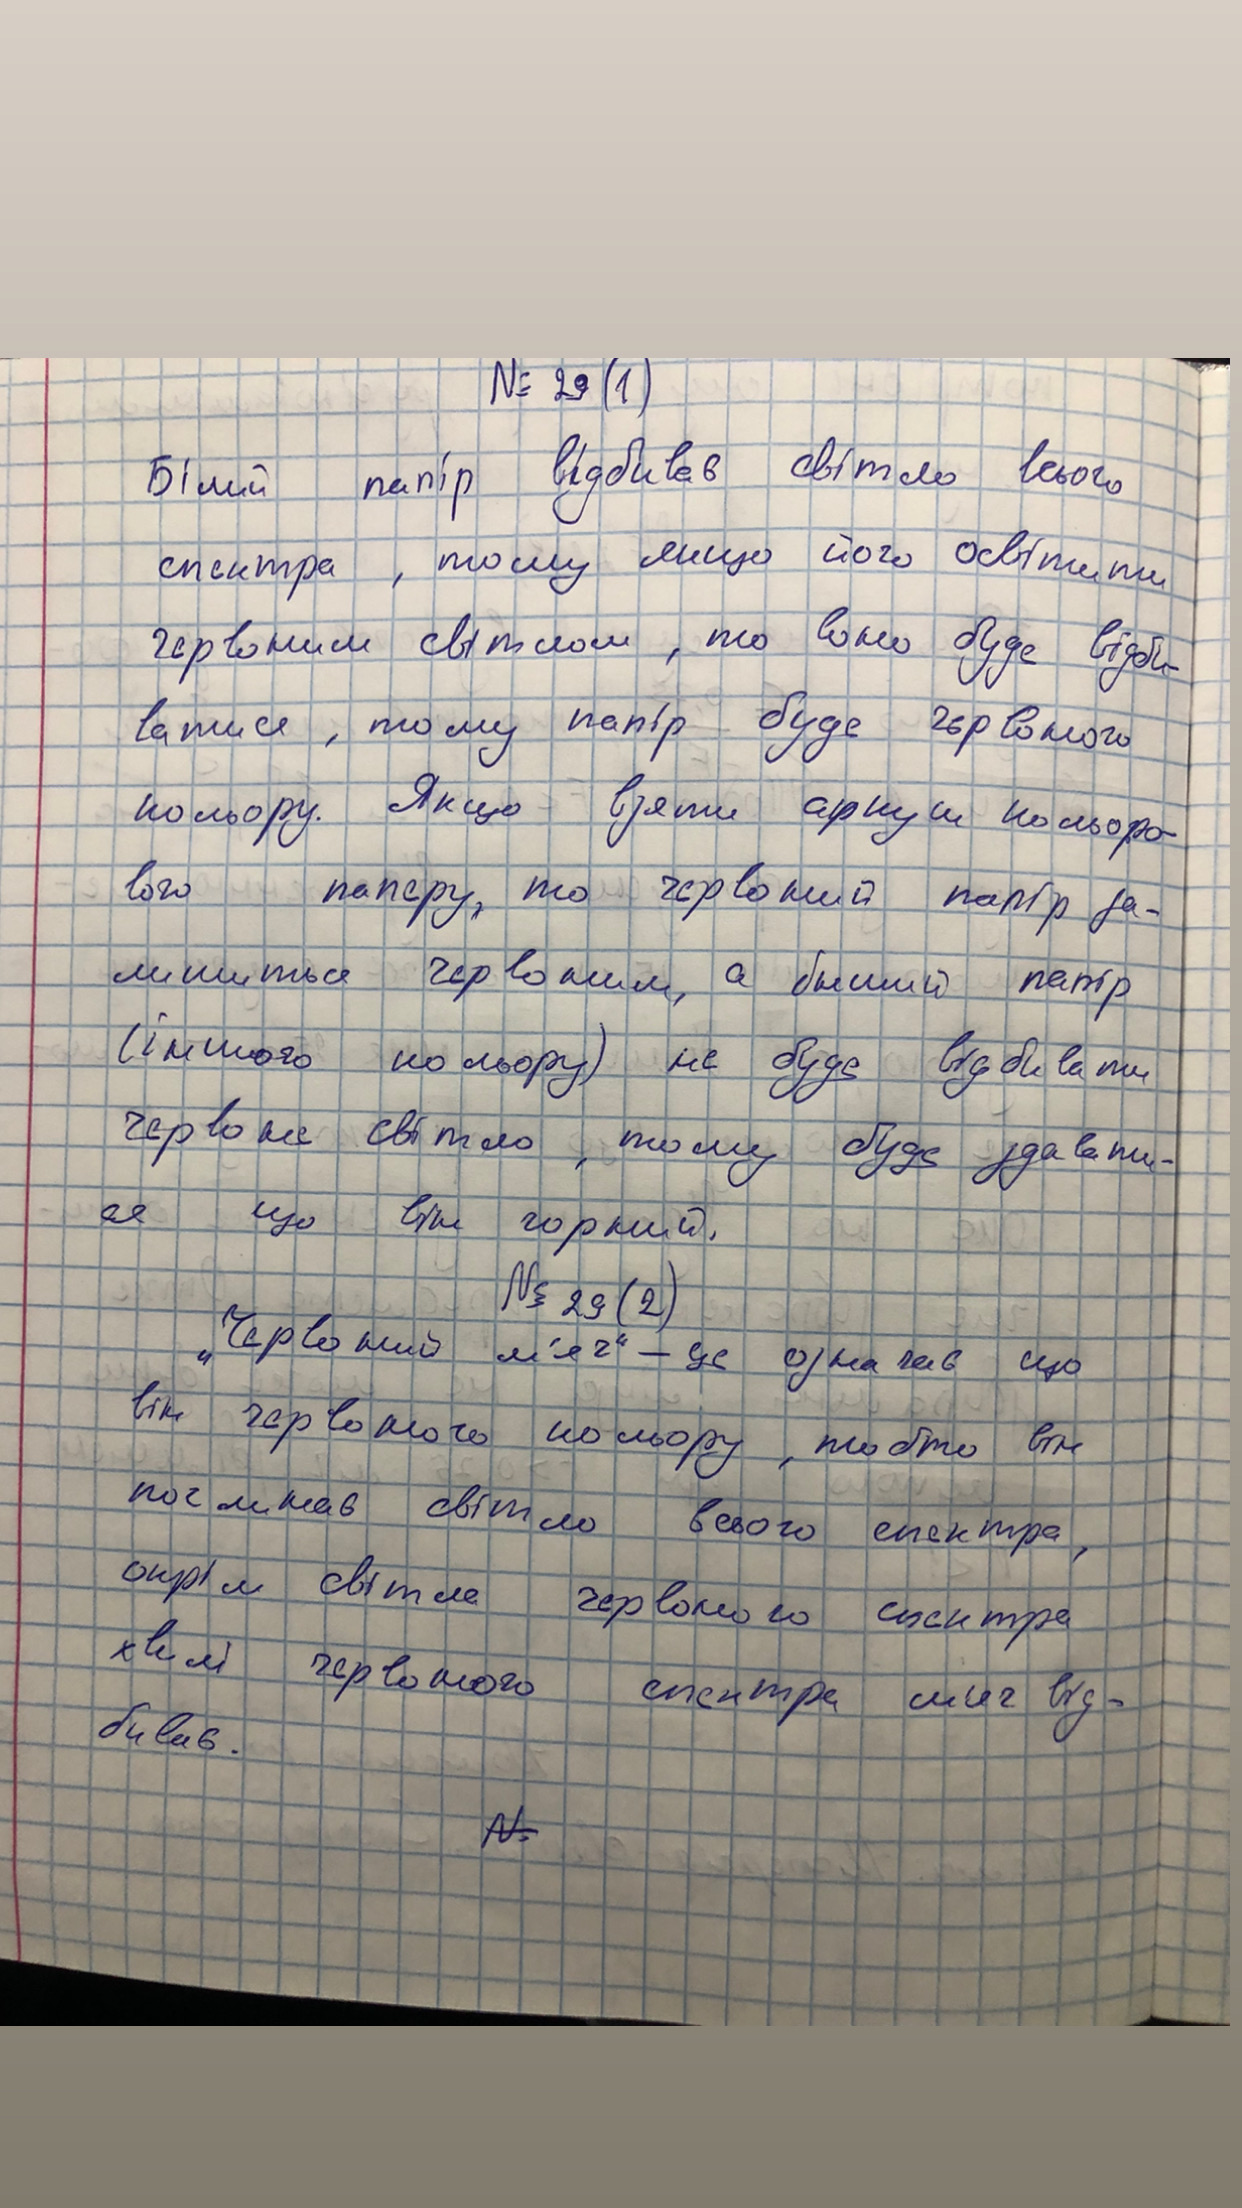 № 29(1)
Білий папір відбиває світло всього
спектра, тому якщо його освітити
червоним світлом, то воно буде відби-
ватися, тому папір буде червоного
кольору. Якщо взяти аркуш кольоро-
вого паперу, то червоний папір за-
лишиться червоним, а папір
(іншого кольору) не буде відбивати
червоне світло, тому буде здавати-
ся що він чорний.
№ 29(2)
„Червоний м'яч" – це означає що
він червоного кольору, тобто він
поглинає світло всього спектра,
окрім світла червоного спектра
хвилі червоного спектра м'яч від-
биває.
№